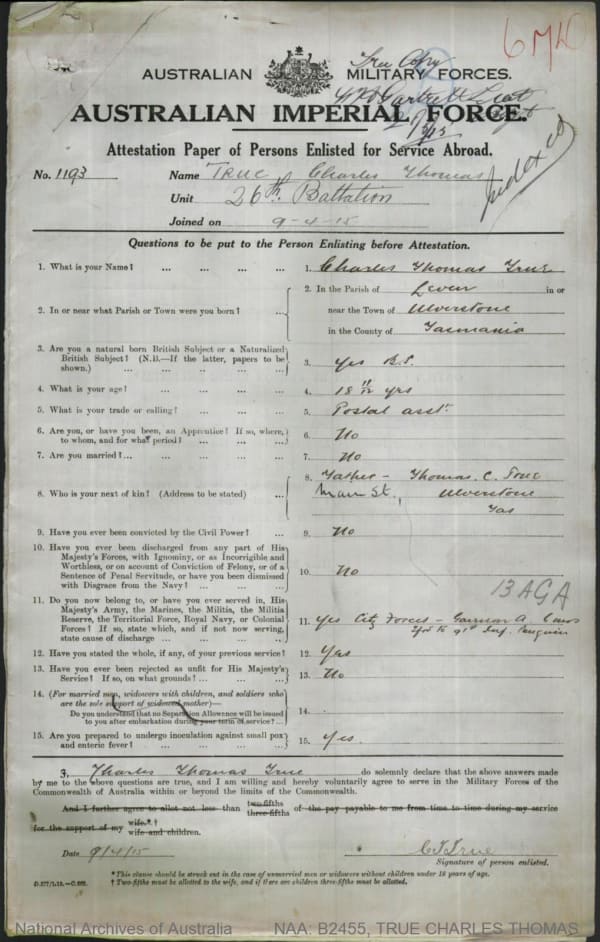 True Copy
AUSTRALIAN MILITARY FORCES.
AUSTRALIAN IMPERIAL FORCE.
Attestation Paper of Persons Enlisted for Service Abroad.
No. 1193 Name TRUE Charles Thomas
Unit 26th Battalion
Indexed
Joined on 9-4-15
Questions to be put to the Person Enlisting before Attestation.
1. What is your Name? ... ... ... ... 1. Charles Thomas True
2. In or near what Parish or Town were you born? ... 2. In the Parish of Leven in or
near the Town of Ulverstone
in the County of Tasmania
3. Are you a natural born British Subject or a Naturalized
British Subject? (N.B.—If the latter, papers to be
shown.) ... ... ... ... 3. Yes B.S.
4. What is your age? ... ... ... ... 4. 18 11/12 yrs
5. What is your trade or calling? ... ... ... 5. Postal asst.
6. Are you, or have you been, an Apprentice? If so, where,
to whom, and for what period? ... ... ... 6. No
7. Are you married?... ... ... ... ... 7. No
8. Who is your next of kin? (Address to be stated) ... 8. Father - Thomas. C. True
Main St, Ulverstone
Tas
9. Have you ever been convicted by the Civil Power? ... 9. No
10. Have you ever been discharged from any part of His
Majesty's Forces, with Ignominy, or as Incorrigible and
Worthless, or on account of Conviction of Felony, or of a
Sentence of Penal Servitude, or have you been dismissed
with Disgrace from the Navy? ... ... ... 10. No
13 AGA
11. Do you now belong to, or have you ever served in, His
Majesty's Army, the Marines, the Militia, the Militia
Reserve, the Territorial Force, Royal Navy, or Colonial
Forces? If so, state which, and if not now serving,
state cause of discharge ... ... ... ... 11. Yes Citz Forces - Garrison A.
Inf. Penguin
12. Have you stated the whole, if any, of your previous service? 12. Yes
13. Have you ever been rejected as unfit for His Majesty's
Service? If so, on what grounds? ... ... ... 13. No
14. (For married men, widowers with children, and soldiers who
are the sole support of widowed mother)—
Do you understand that no Separation Allowance will be issued
to you after embarkation during your term of service? ... 14.
15. Are you prepared to undergo inoculation against small pox
and enteric fever? ... ... ... ... 15. Yes.
I, Charles Thomas True do solemnly declare that the above answers made
by me to the above questions are true, and I am willing and hereby voluntarily agree to serve in the Military Forces of the
Commonwealth of Australia within or beyond the limits of the Commonwealth.
And I further agree to allot not less than two-fifths three-fifths of the pay payable to me from time to time during my service
for the support of my wife.*† wife and children.
Date 9/4/15 C T True
Signature of person enlisted.
* This clause should be struck out in the case of unmarried men or widowers without children under 18 years of age.
† Two-fifths must be allotted to the wife, and if there are children three-fifths must be allotted.
National Archives of Australia NAA: B2455, TRUE CHARLES THOMAS